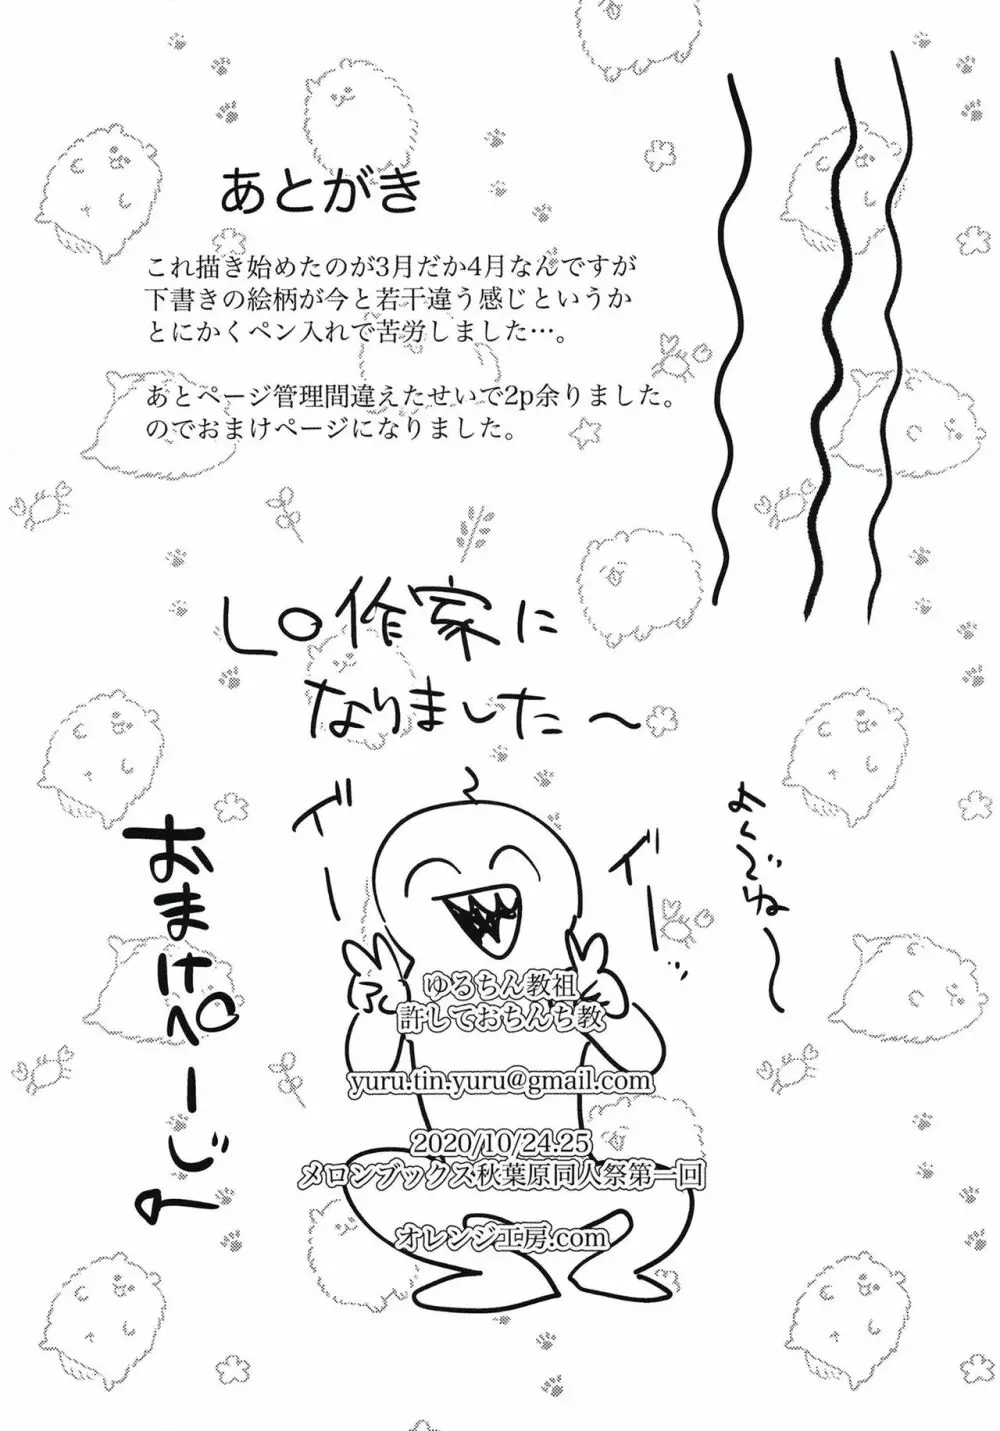 あとがき
これ描き始めたのが3月だか4月なんですが
下書きの絵柄が今と若干違う感じというか
とにかくペン入れで苦労しました…。
あとページ管理間違えたせいで2p余りました。
のでおまけページになりました。
LO作家に
なりました〜
イエー
イエー
よくぞね〜
おまけぺーじ
ゆるちん教祖
許しておちんち教
yuru.tin.yuru@gmail.com
2020/10/24.25
メロンブックス秋葉原同人祭第一回
オレンジ工房.com